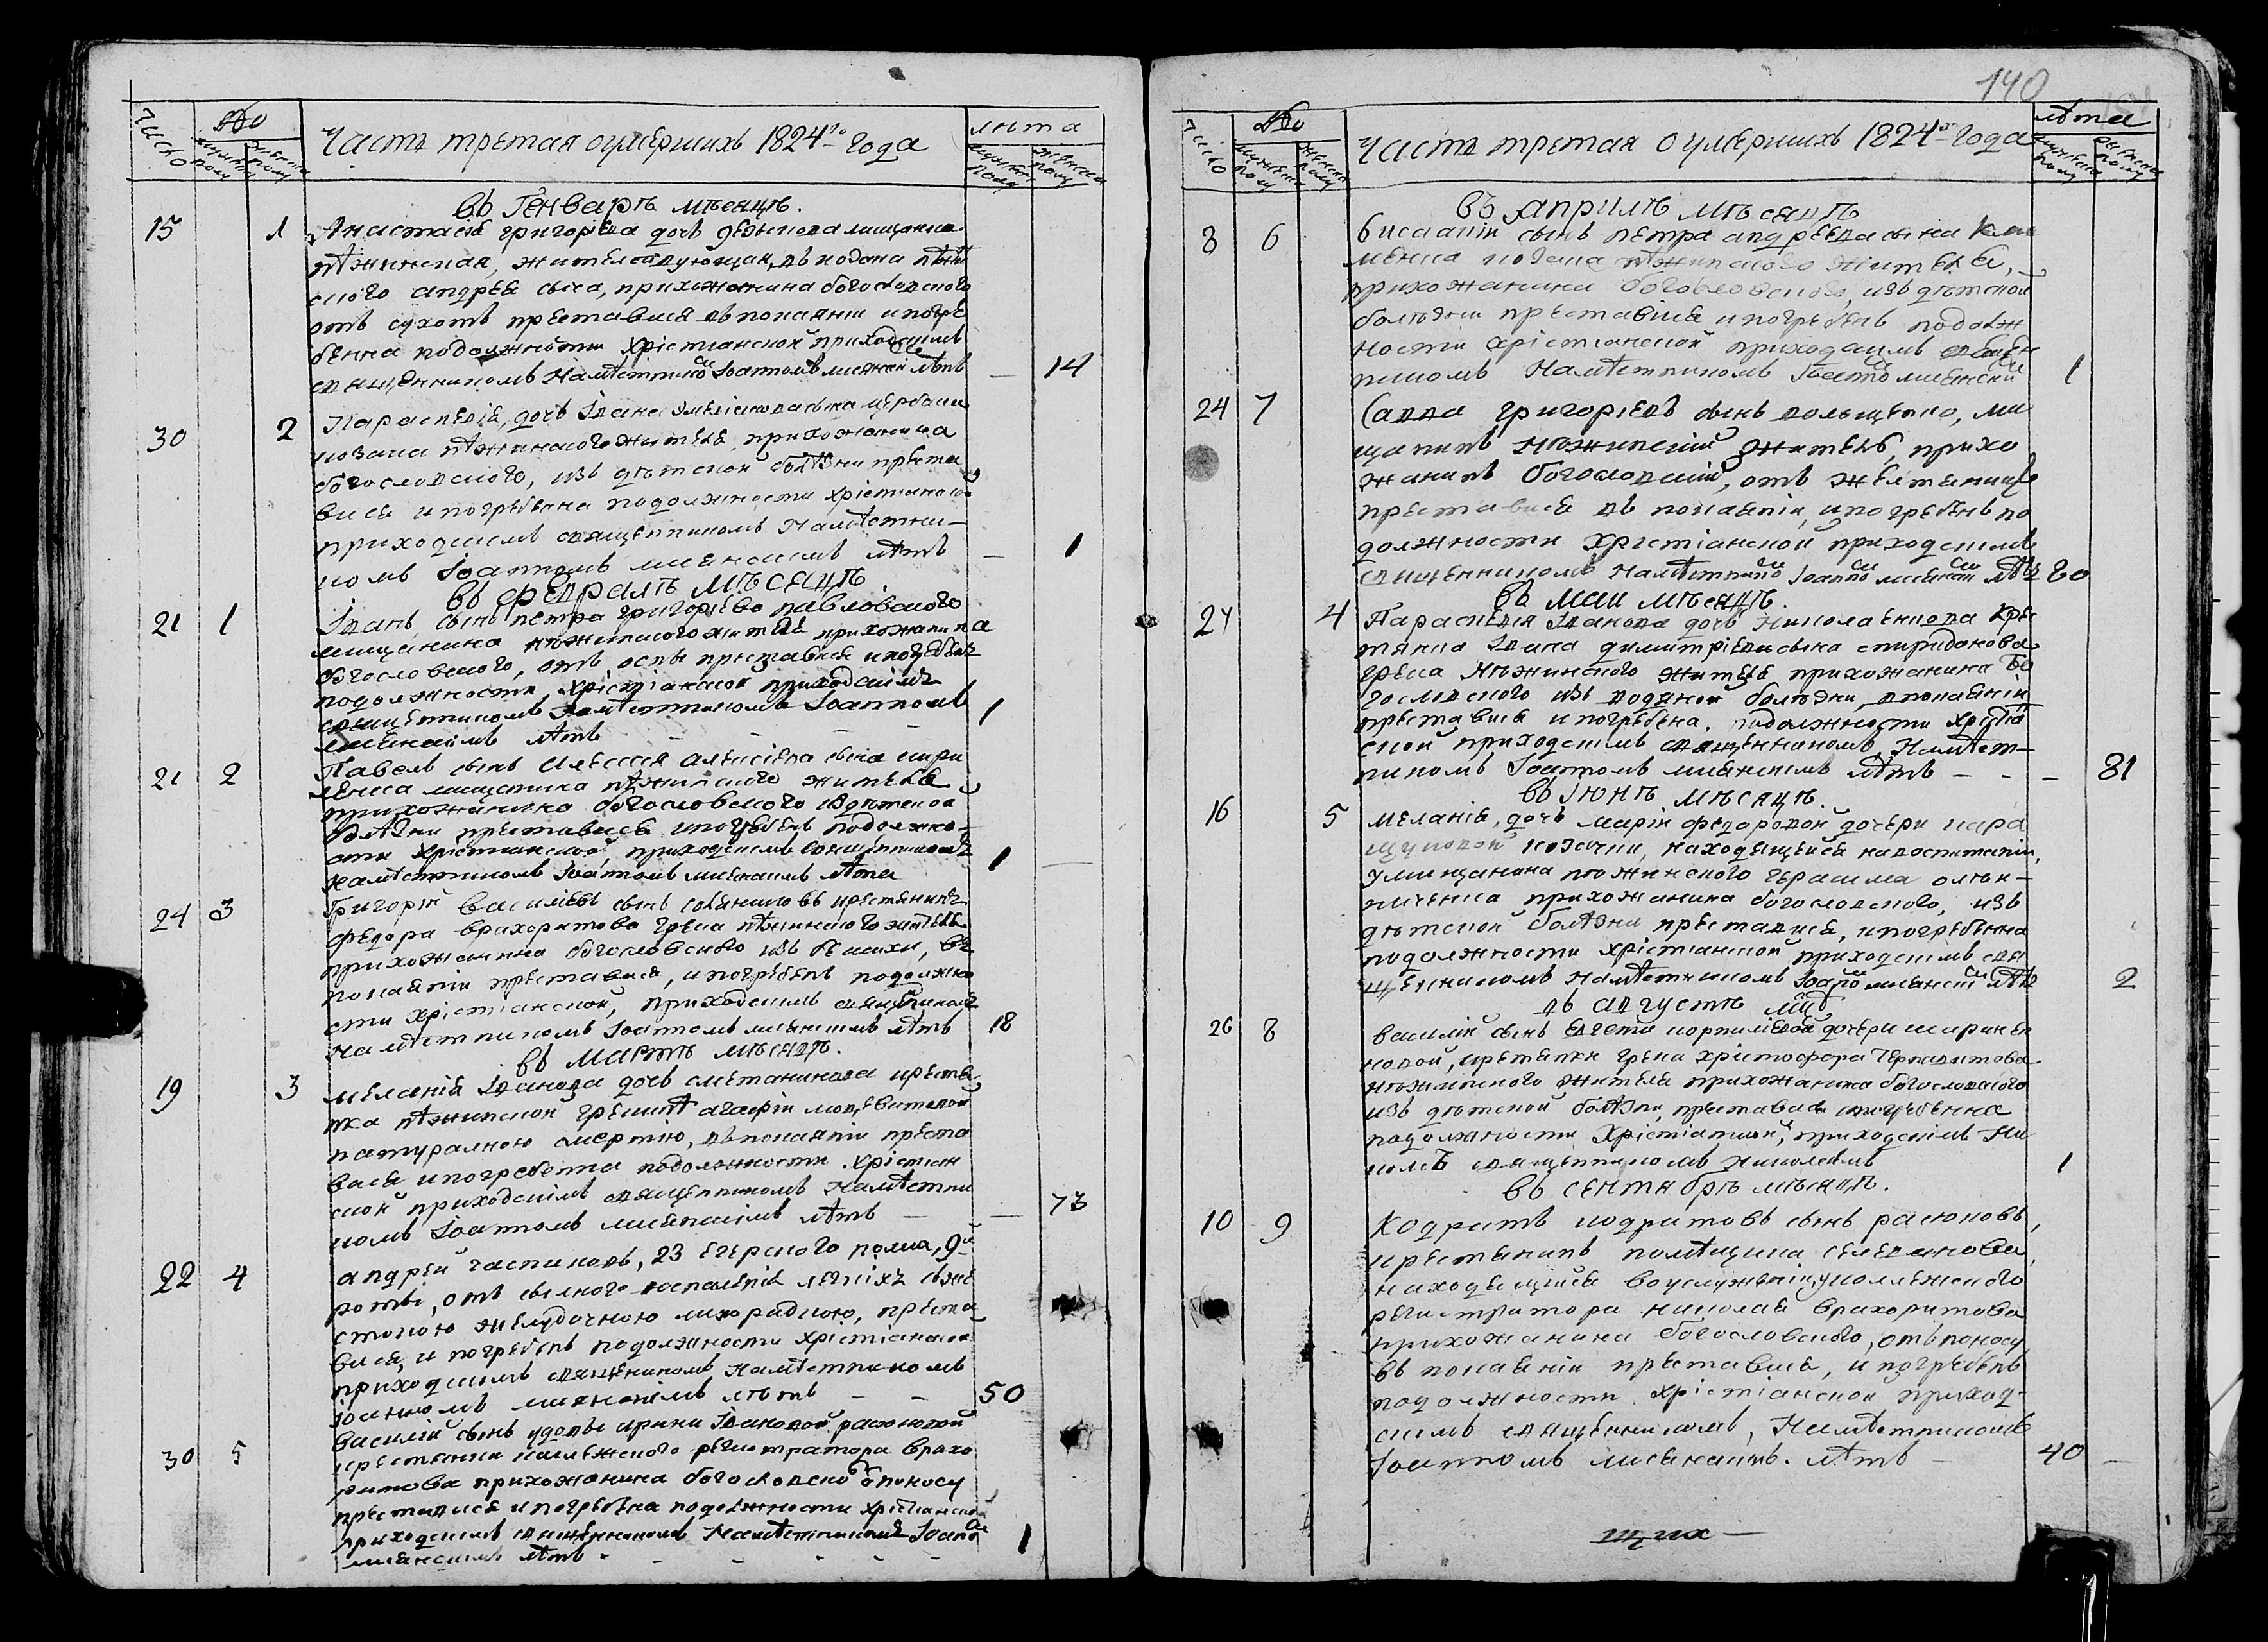 Число
№
мужеска полу
женска полу
Часть третая оумершихъ 1824го года
лѣта
мужеска полу
женска полу
въ Генварѣ мѣсяцѣ.
15 1 Анастасія григоріева дочь мищанка
нѣжинская, жителствующая въ козака нѣжи
ского андрея прихожанина богословского
отъ сухотъ преставися въ покаяніи и погре
бенна подолжности христіанской приходскимъ
священникомъ Намѣстникомъ Іоанномъ мисянскимъ лѣтъ — 14
30 2 Параскевія, дочь Івана сына щербака
козака нѣжинского жителя прихожанина
богословского, изъ дѣтской болѣзни преста
вися и погребенна подолжности христіанской
приходскимъ священникомъ Намѣстни-
комъ Іоанномъ мисянскимъ лѣтъ — 1
въ февралѣ мѣсяцѣ.
21 1 Іванъ, сынъ петра григорієво павловского
мищанина нѣжинского жителя прихожанина
богословского, отъ оспы преставися и погребенъ
подолжности христіанской приходскимъ
священникомъ Намѣстникомъ Іоанномъ 1
мисянскимъ лѣтъ - - - -
21 2 Павелъ сынъ алексѣя алексіева сына кири
ленка мищанина нѣжинского жителя
прихожанина богословского из дѣтской
болѣзни преставися и погребенъ подолжно-
сти христианской приходскимъ священникомъ
Намѣстникомъ Іоанномъ мисянскимъ лѣта 1 —
24 3 Григорій василіевъ сынъ крестянинъ
федора врахоритова грека нѣжинского жителя
прихожанина богословского изъ въ
покаяніи преставися, и погребенъ подолжно
сти христіанской, приходскимъ священникомъ
Намѣстникомъ Іоанномъ мисянскимъ лѣтъ 18
въ мартѣ мѣсяцѣ.
19 3 меланія Іванова дочь сметаникова крестя
нка нѣжинской агафіи
натуралною смертію, въ покаяніи преста
вися и погребенна подолжности христиан
ской приходскимъ священникомъ Намѣстни
комъ Іоанномъ мисянскимъ лѣтъ — — 73
22 4 андрей часниковъ, 23 егерского полка, 9й
роты, отъ силного воспаленія легкихъ
желудочною лихорадкою, преста
вися, и погребенъ подолжности христіанской
приходскимъ священикомъ Намѣстникомъ
Іоанномъ мисянскимъ лѣтъ - - 50
30 5 василій сынъ удовы ирины Івановой расюковой
крестянки колежского регистратора врахо
ритова прихожанина богословско отъ поносу
преставися и погребенна подолжности христианской
приходскимъ священникомъ Намѣстникомъ Іоанно
мисянскимъ лѣтъ - - - - - - 1
140
Число
№
мужеска полу
женска полу
Часть третая оумершихъ 1824го года
лѣта
мужеска полу
женска полу
въ априлѣ мѣсяцѣ
8 6 сынъ петра андреева сына
менка козака нѣжинского жителя,
прихожанина богословского, изъ дѣтской
болѣзни преставися и погребенъ подолж
ности христіанской приходскимъ священ
никомъ Намѣстникомъ Іоанномъ мисянски 1
24 7 Савва григоріевъ сынъ волыщенко, ми
щанинъ нѣжинскій житель, прихо
жанинъ богословскій, отъ желтяницы
преставися въ покаяніи, и погребенъ по
должности христіанской приходскимъ
священникомъ Намѣстнико Іоанно мисянски лѣтъ 80
въ маи мѣсяцѣ.
24 4 Параскевія Іванова дочь Николаенкова кре
тянка Івана димитріева сына спиридонова
грека нѣжинского жителя прихожанина бо
гословского изъ водяной болѣзни, в покаяніи
преставися и погребена, подолжности христиа
ской приходскимъ священникомъ, Намѣст-
никомъ Іоанномъ мисянскимъ лѣтъ - - - 81
въ Іюнѣ мѣсяцѣ.
16 5 меланія, дочь маріи федоровой дочери кара
козачки, находящейся на воспитаніи,
у мищанина нѣжинского герасима
прихожанина богословского, изъ
дѣтской болѣзни преставися, и погребенна
подолжности христіанской приходскимъ свя
щенникомъ Намѣстникомъ Іоанно мисянски лѣтъ 2
въ августѣ мцѣ
26 8 василій сынъ корнилієвой дочери ширинен
ковой, крестянки грека христофора
нѣжинского жителя прихожанина богословского
изъ дѣтской болѣзни, преставися и погребенна
подолжности христіанской, приходскимъ Ни
священникомъ Николаемъ 1
въ сентябрѣ мѣсяцѣ.
10 9 Кодратъ кодратовъ сынъ расюковъ,
крестянинъ помѣщика селеванова,
находящійся воуслуженіи у колежского
регистратора николая врахоритова
прихожанина богословского, отъ поносу
въ покаяніи преставися, и погребенъ
подолжности христіанской приход-
скимъ священникомъ, Намѣстникомъ
Іоанномъ мисянскимъ. лѣтъ - 40 -
щих —